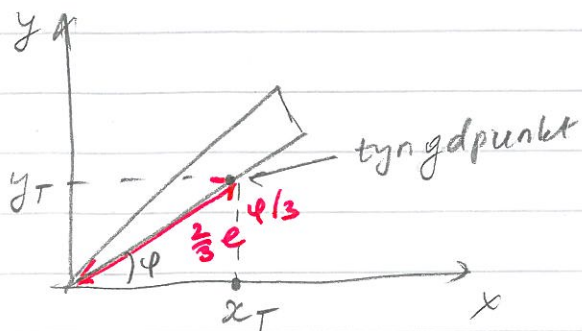 y
tyngdpunkt
y_T
2/3 e^{φ/3}
φ
x_T
x